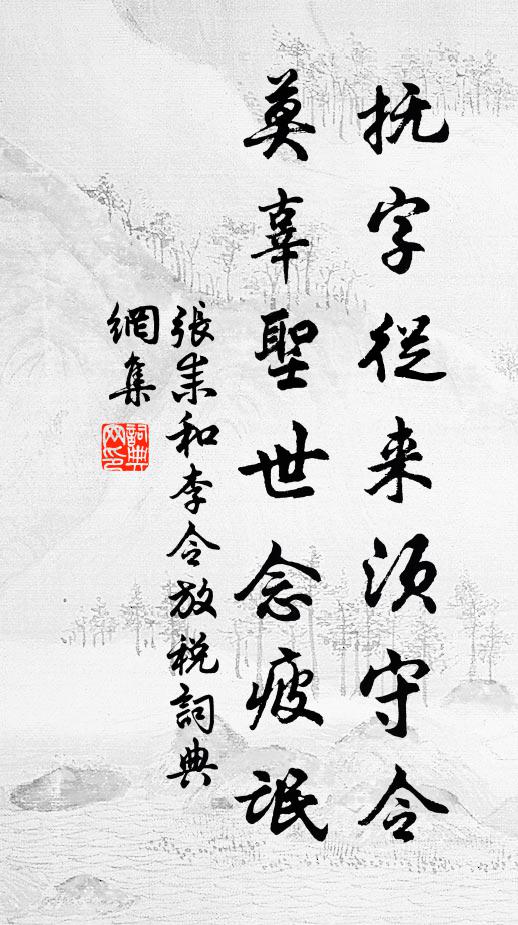 抚字從来须守令
莫辜聖世念疲氓
張耒和李令放税詞典
網集
詞典
网印